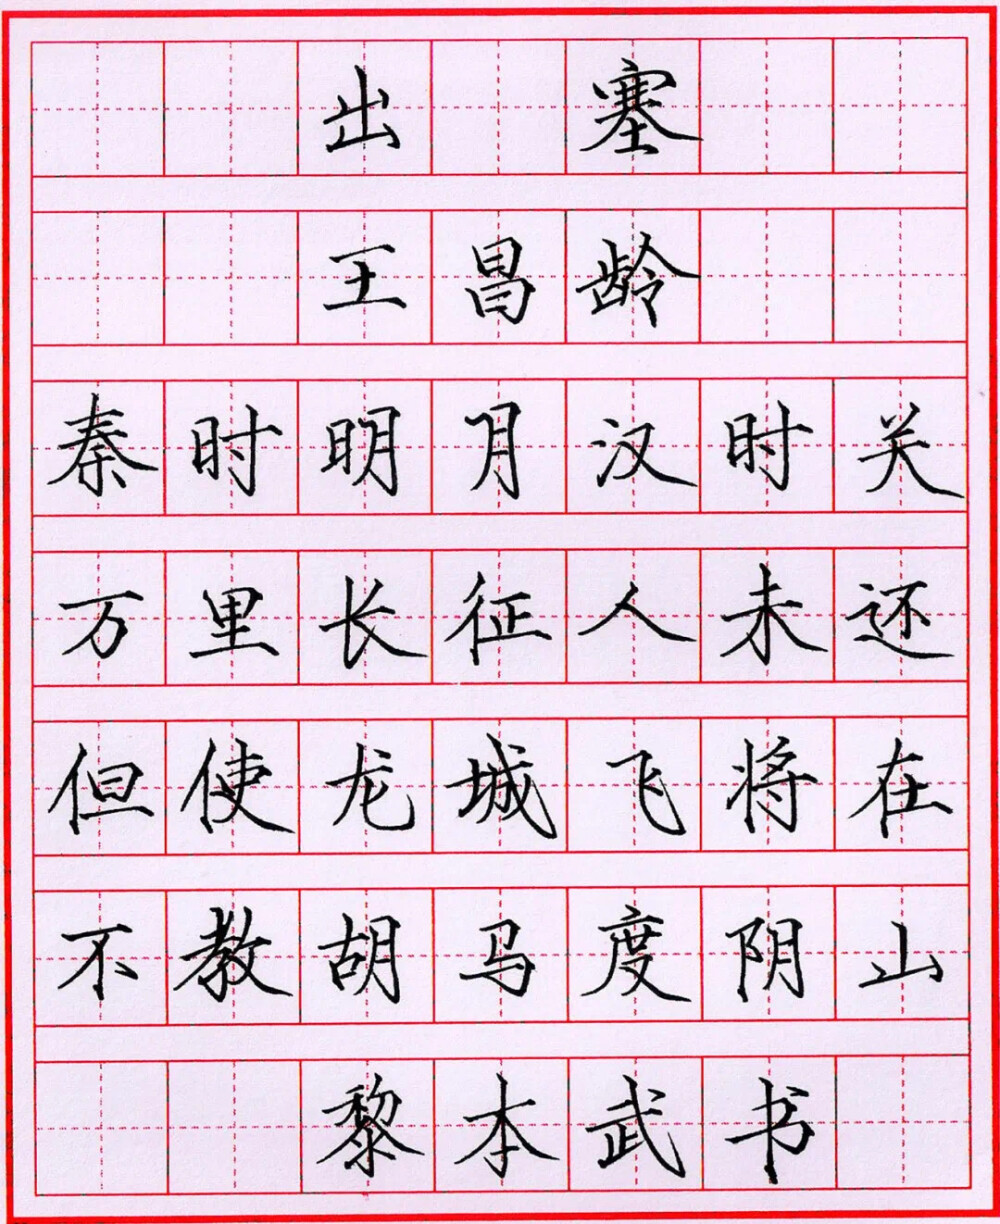 出塞
王昌龄
秦时明月汉时关
万里长征人未还
但使龙城飞将在
不教胡马度阴山
黎本武书